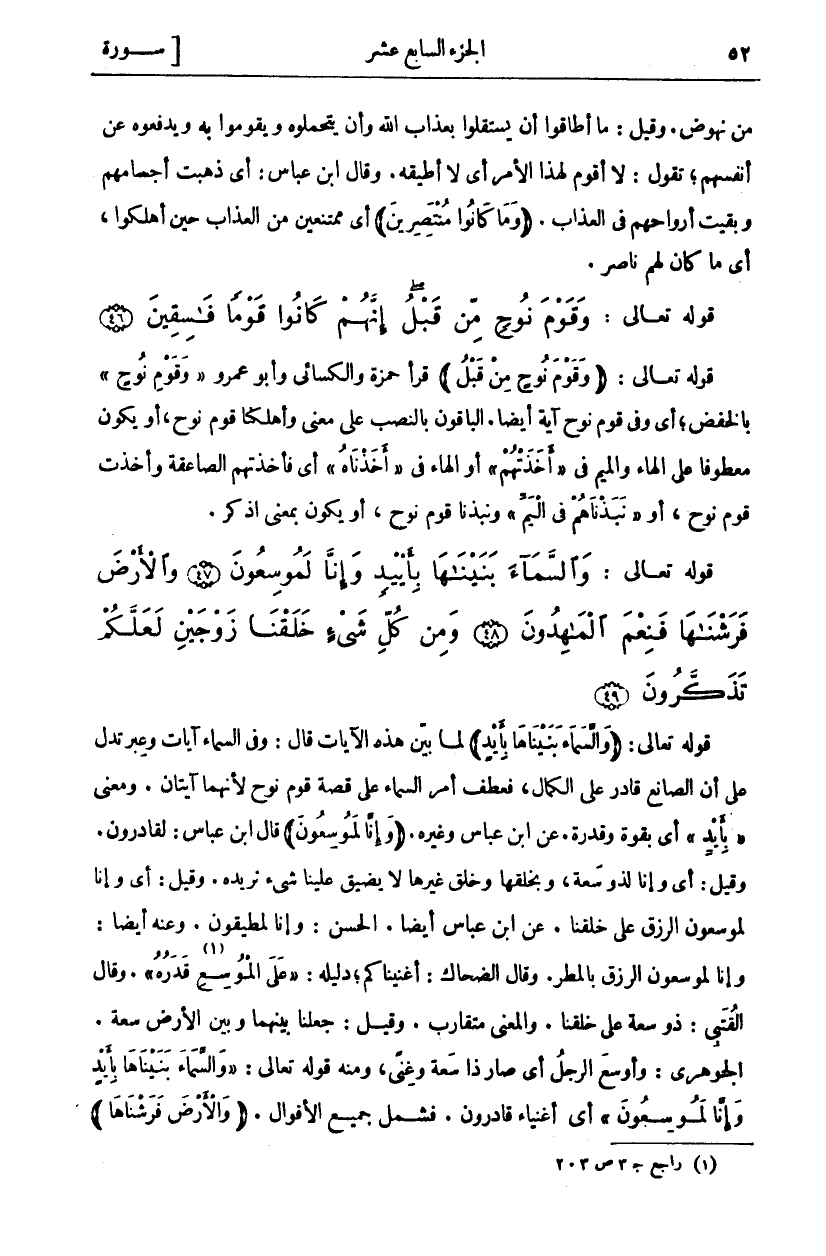 ٥٢ الجزء السابع عشر [ ســورة
من نهوض. وقيل : ما أطاقوا أن يستقلوا بعذاب الله وأن يتحملوه و يقوموا به و يدفعوه عن
أنفسهم؛ تقول : لا أقوم لهذا الأمر أى لا أطيقه. وقال ابن عباس : أى ذهبت أجسامهم
و بقيت أرواحهم فى العذاب . ﴿وَمَا كَانُوا مُنْتَصِرِينَ﴾ أى ممتنعين من العذاب حين أهلكوا ،
أى ما كان لهم ناصر .
قوله تعـالى : وَقَوْمَ نُوحٍ مِّن قَبْلُ ۖ إِنَّهُمْ كَانُوا قَوْمًا فَـٰسِقِينَ ۝٤٦
قوله تعـالى : ﴿ وَقَوْمَ نُوحٍ مِنْ قَبْلُ ﴾ قرأ حمزة والكسائى وأبو عمرو « وَقَوْمِ نُوحٍ »
بالخفض؛ أى وفى قوم نوح آية أيضا. الباقون بالنصب على معنى وأهلكنا قوم نوح، أو يكون
معطوفا على الهاء والميم فى « أَخَذَتْهُمْ» أو الهاء فى « أَخَذْنَاهُ » أى فأخذتهم الصاعقة وأخذت
قوم نوح ، أو « نَبَذْنَاهُمْ فِى الْيَمِّ » ونبذنا قوم نوح ، أو يكون بمعنى اذكر .
قوله تعـالى : وَٱلسَّمَآءَ بَنَيْنَـٰهَا بِأَيْيْدٍ وَإِنَّا لَمُوسِعُونَ ۝٤٧ وَٱلْأَرْضَ
فَرَشْنَـٰهَا فَنِعْمَ ٱلْمَـٰهِدُونَ ۝٤٨ وَمِن كُلِّ شَىْءٍ خَلَقْنَـا زَوْجَيْنِ لَعَلَّكُمْ
تَذَكَّرُونَ ۝٤٩
قوله تعالى: ﴿وَالسَّمَاءَ بَنَيْنَاهَا بِأَيْدٍ﴾ لمـا بيّن هذه الآيات قال : وفى السماء آيات وعبر تدل
على أن الصانع قادر على الكمال، فعطف أمر السماء على قصة قوم نوح لأنهما آيتان . ومعنى
« بِأَيْدٍ » أى بقوة وقدرة. عن ابن عباس وغيره. ﴿وَ إِنَّا لَمُوسِعُونَ﴾ قال ابن عباس : لقادرون.
وقيل: أى و إنا لذو سَعة، و بخلقها وخلق غيرها لا يضيق علينا شىء نريده. وقيل: أى و إنا
لموسعون الرزق على خلقنا . عن ابن عباس أيضا . الحسن : و إنا لمطيقون . وعنه أيضا :
و إنا لموسعون الرزق بالمطر. وقال الضحاك : أغنيناكم؛ دليله : « عَلَى الْمُوسِعِ قَدَرُهُ» (١). وقال
القُتَبِى : ذو سعة على خلقنا . والمعنى متقارب . وقيـل : جعلنا بينهما و بين الأرض سعة .
الجوهرى : وأوسعَ الرجلُ أى صار ذا سَعة وغِنًى، ومنه قوله تعالى : « وَالسَّمَاءَ بَنَيْنَاهَا بِأَيْدٍ
وَ إِنَّا لَمُـوسِـعُونَ » أى أغنياء قادرون . فشـمل جميـع الأقوال . ﴿ وَالْأَرْضَ فَرَشْنَاهَا ﴾
(١) راجع جـ ٣ ص ٢٠٣